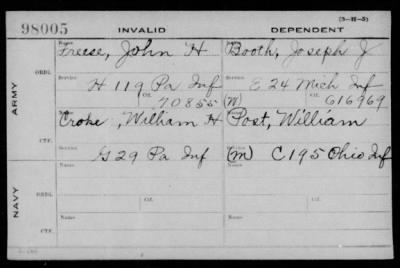 (3-H-5)
98005 INVALID DEPENDENT
Name Name
Freese, John H Booth, Joseph J
ARMY
ORIG.
Service Service
H 119 Pa Inf E 24 Mich Inf
Ctf. 70855 (W) Ctf. 616969
Name Name
Croke, William H Post, William
CTF.
Service Service
G 29 Pa Inf (M) C 195 Ohio Inf
NAVY
ORIG.
Name Name
Ctf. Ctf.
CTF.
Name Name